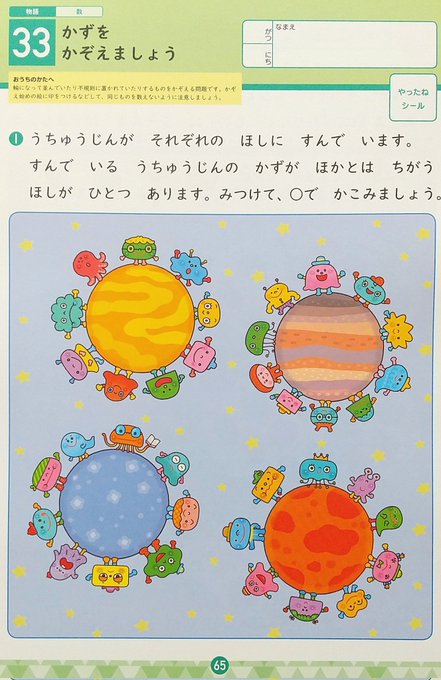 物語 数
33 かずを
かぞえましょう
がつ にち
なまえ
おうちのかたへ
輪になって並んでいたり不規則に置かれていたりするものをかぞえる問題です。かぞ
え始めの絵に印をつけるなどして、同じものを数えないように注意しましょう。
やったね
シール
1 うちゅうじんが それぞれの ほしに すんで います。
すんで いる うちゅうじんの かずが ほかとは ちがう
ほしが ひとつ あります。みつけて、○で かこみましょう。
65